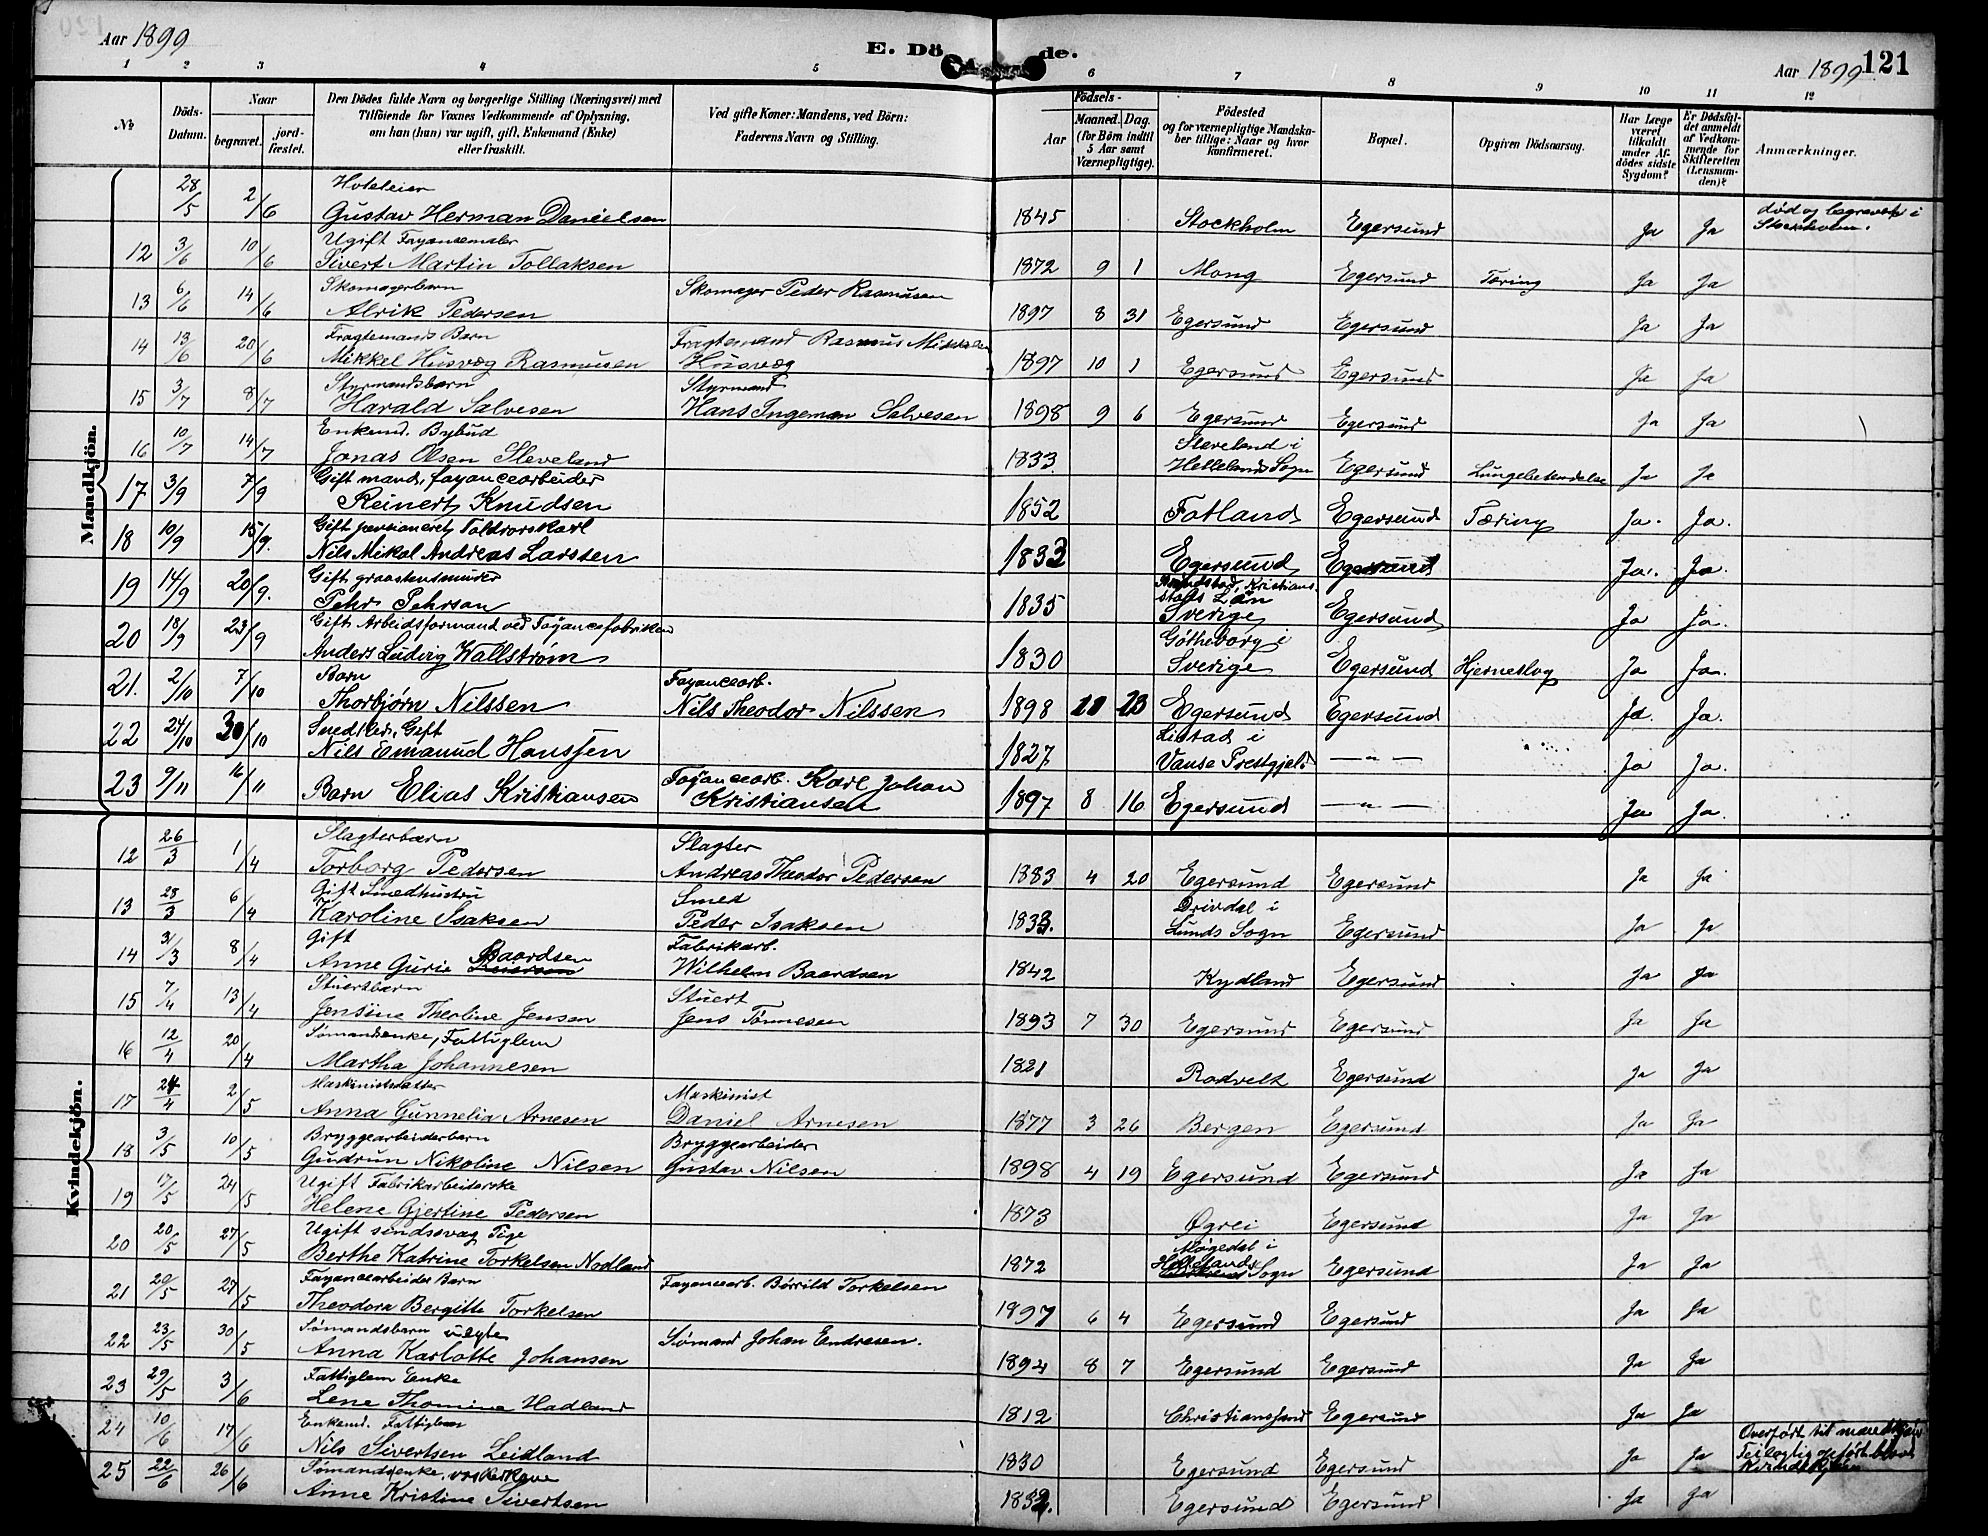 Aar 1899
E. Döde.
Aar 1899
121
1 2 3 4 5 6 7 8 9 10 11 12
No
Döds-Datum.
Naar
begravet.
jord-fæstet.
Den Dödes fulde Navn og borgerlige Stilling (Næringsvei) med
Tilföiende for Voxnes Vedkommende af Oplysning,
om han (hun) var ugift, gift, Enkemand (Enke)
eller fraskilt.
Ved gifte Koner: Mandens, ved Börn:
Faderens Navn og Stilling.
Födsels-
Aar
Maaned. Dag.
(for Börn indtil
5 Aar samt
Værnepligtige).
Födested
og for værnepligtige Mandska-
ber tillige: Naar og hvor
konfirmeret.
Bopæl.
Opgiven Dödsaarsag.
Har Læge
været
tilkaldt
under Af-
dödes sidste
Sygdom?
Er Dödsfal-
det anmeldt
af Vedkom-
mende for
Skifteretten
(Lensman-
den)?
Anmærkninger.
Mandkjön.
28/5 2/6 Hoteleier
Gustav Herman Danielsen 1845 Stockholm Egersund Ja Ja død og begravet i
Stockholm.
12 3/6 10/6 Ugift Fayansemaler
Sivert Martin Tollaksen 1872 9 1 Mong Egersund Tæring Ja Ja
13 6/6 14/6 Skomagerbarn
Alrik Pedersen Skomager Peder Rasmusen 1897 8 31 Egersund Egersund Ja Ja
14 13/6 20/6 Fragtemands Barn
Mikkel Husvæg Rasmusen Fragtemand Rasmus Mikkelsen
Husvæg 1897 10 1 Egersund Egersund Ja Ja
15 3/7 8/7 Styrmandsbarn
Harald Salvesen Styrmand
Hans Ingeman Salvesen 1898 9 6 Egersund Egersund Ja Ja
16 10/7 14/7 Enkemd. Bybud
Jonas Olsen Sleveland 1833 Sleveland i
Hellelands Sogn Egersund Lungebetendelse Ja Ja
17 3/9 7/9 Gift mand, fayancearbeider
Reinert Knudsen 1852 Fotland Egersund Tæring Ja. Ja.
18 10/9 15/9. Gift pensioneret Toldrorskarl
Nils Mikal Andreas Larssen 1833 Egersund Egersund Ja. Ja.
19 14/9 20/9. Gift graastensmurer
Pehr Pehrson 1835 Kristians
stads Län
Sverige Egersund Ja Ja.
20 18/9 23/9 Gift Arbeidsformand ved Fayancefabriken
Anders Ludvig Wallstrøm 1830 Götheborg i
Sverige Egersund Hjerneslag Ja Ja.
21. 2/10 7/10 Barn
Thorbjørn Nilssen Fayancearb.
Nils Theodor Nilssen 1898 11 23 Egersund Egersund Ja. Ja.
22 24/10 30/10 Snedker, Gift
Nils Emanuel Hanssen 1827 Listad i
Vanse Prestgjeld — " — Ja Ja.
23 9/11 16/11 Barn Elias Kristiansen Fayancearb. Karl Johan
Kristiansen 1897 8 16 Egersund — " — Ja Ja.
Kvindekjön.
12 26/3 1/4 Slagterbarn
Torborg Pedersen Slagter
Andreas Theodor Pedersen 1883 4 20 Egersund Egersund Ja Ja
13 28/3 6/4 Gift Smedhustru
Karoline Isaksen Smed
Peder Isaksen 1833. Drivdal i
Lunds Sogn Egersund Ja Ja
14 31/3 8/4 Gift
Anne Gurie Baardsen Fabrikarb.
Wilhelm Baardsen 1842 Kydland Egersund Ja Ja
15 7/4 13/4 Stuertbarn
Jensine Theoline Jensen Stuert
Jens Tønnesen 1893 7 30 Egersund Egersund Ja Ja
16 12/4 20/4 Sømandsenke, Fattiglem
Martha Johannesen 1821 Rodvelt Egersund Ja Ja
17 24/4 2/5 Maskinistdatter
Anna Gunnelia Arnesen Maskinist
Daniel Arnesen 1877 3 26 Bergen Egersund Ja Ja
18 3/5 10/5 Bryggearbeiderbarn
Gudrun Nikoline Nilsen Bryggearbeider
Gustav Nilsen 1898 4 19 Egersund Egersund Ja Ja
19 17/5 24/5 Ugift Fabrikarbeiderske
Helene Gjertine Pedersen 1873 Øgrei Egersund Ja Ja
20 20/5 27/5 Ugift sindssvag Pige
Berthe Katrine Torkelsen Nodland 1872 Møgedal i
Hellelands Sogn Egersund Ja Ja
21 20/5 27/5 Fayancearbeider Barn
Theodora Bergitte Torkelsen Fayancearb. Børrild Torkelsen 1897 6 4 Egersund Egersund Ja Ja
22 23/5 30/5 Sømandsbarn uægte
Anna Karlotte Johansen Sømand Johan Endresen. 1894 8 7 Egersund Egersund Ja Ja
23 29/5 3/6 Fattiglem Enke
Lene Thomine Hadland 1812 Christianssand Egersund Ja Ja
24 10/6 17/6 Enkemd. Fattiglem
Nils Sivertsen Leidland 1830 Egersund Egersund Ja Ja Overført til mandkjøn
Feilagtig opført blandt
Kvindekjøn
25 22/6 26/6 Sømandsenke, vaskerkone
Anne Kristine Sivertsen 1832. Egersund Egersund Ja Ja